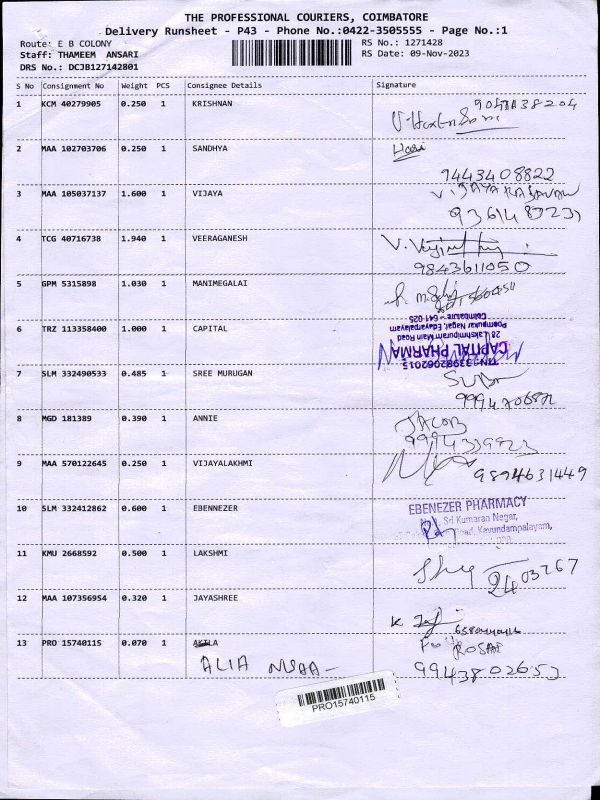 THE PROFESSIONAL COURIERS, COIMBATORE
Delivery Runsheet - P43 - Phone No.:0422-3505555 - Page No.:1
Route: E B COLONY
RS No.: 1271428
Staff: THAMEEM ANSARI
RS Date: 09-Nov-2023
DRS No.: DCJB127142801
S No Consignment No Weight PCS Consignee Details Signature
1 KCM 40279905 0.250 1 KRISHNAN
2 MAA 102703706 0.250 1 SANDHYA
Hari
9443408822
3 MAA 105037137 1.600 1 VIJAYA
4 TCG 40716738 1.940 1 VEERAGANESH
9843611050
5 GPM 5315898 1.030 1 MANIMEGALAI
6 TRZ 113358400 1.000 1 CAPITAL
TIN:33982062015
CAPITAL PHARMA
28 Lakshmipuram Main Road
Poompukar Nagar, Edayarpalayam
Coimbatore - 641 025
7 SLM 332490533 0.485 1 SREE MURUGAN
8 MGD 181389 0.390 1 ANNIE
JACOB
9 MAA 570122645 0.250 1 VIJAYALAKHMI
9894631449
10 SLM 332412862 0.600 1 EBENNEZER
EBENEZER PHARMACY
Sri Kumaran Nagar,
Road, Kavundampalayam,
11 KMU 2668592 0.500 1 LAKSHMI
2403267
12 MAA 107356954 0.320 1 JAYASHREE
13 PRO 15740115 0.070 1 AKILA
ALIA
9943802653
PRO15740115